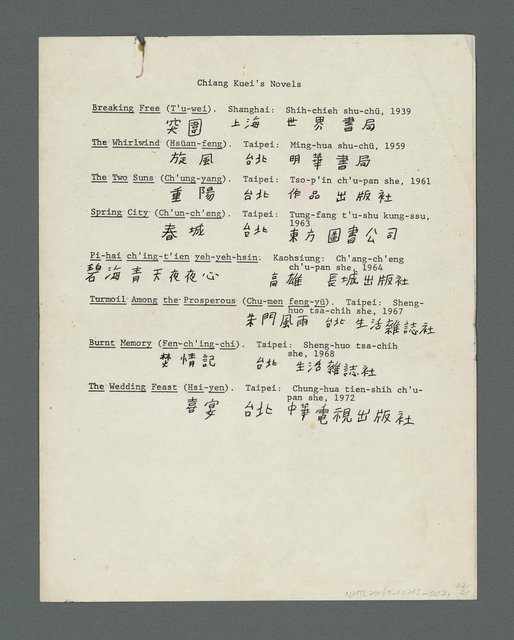 Chiang Kuei's Novels
Breaking Free (T'u-wei). Shanghai: Shih-chieh shu-chü, 1939
突圍 上海 世界書局
The Whirlwind (Hsüan-feng). Taipei: Ming-hua shu-chü, 1959
旋風 台北 明華書局
The Two Suns (Ch'ung-yang). Taipei: Tso-p'in ch'u-pan she, 1961
重陽 台北 作品出版社
Spring City (Ch'un-ch'eng). Taipei: Tung-fang t'u-shu kung-ssu,
1963
春城 台北 東方圖書公司
Pi-hai ch'ing-t'ien yeh-yeh-hsin. Kaohsiung: Ch'ang-ch'eng
ch'u-pan she, 1964
碧海青天夜夜心 高雄 長城出版社
Turmoil Among the Prosperous (Chu-men feng-yü). Taipei: Sheng-
huo tsa-chih she, 1967
朱門風雨 台北 生活雜誌社
Burnt Memory (Fen-ch'ing-chi). Taipei: Sheng-huo tsa-chih
she, 1968
焚情記 台北 生活雜誌社
The Wedding Feast (Hsi-yen). Taipei: Chung-hua tien-shih ch'u-
pan she, 1972
喜宴 台北 中華電視出版社